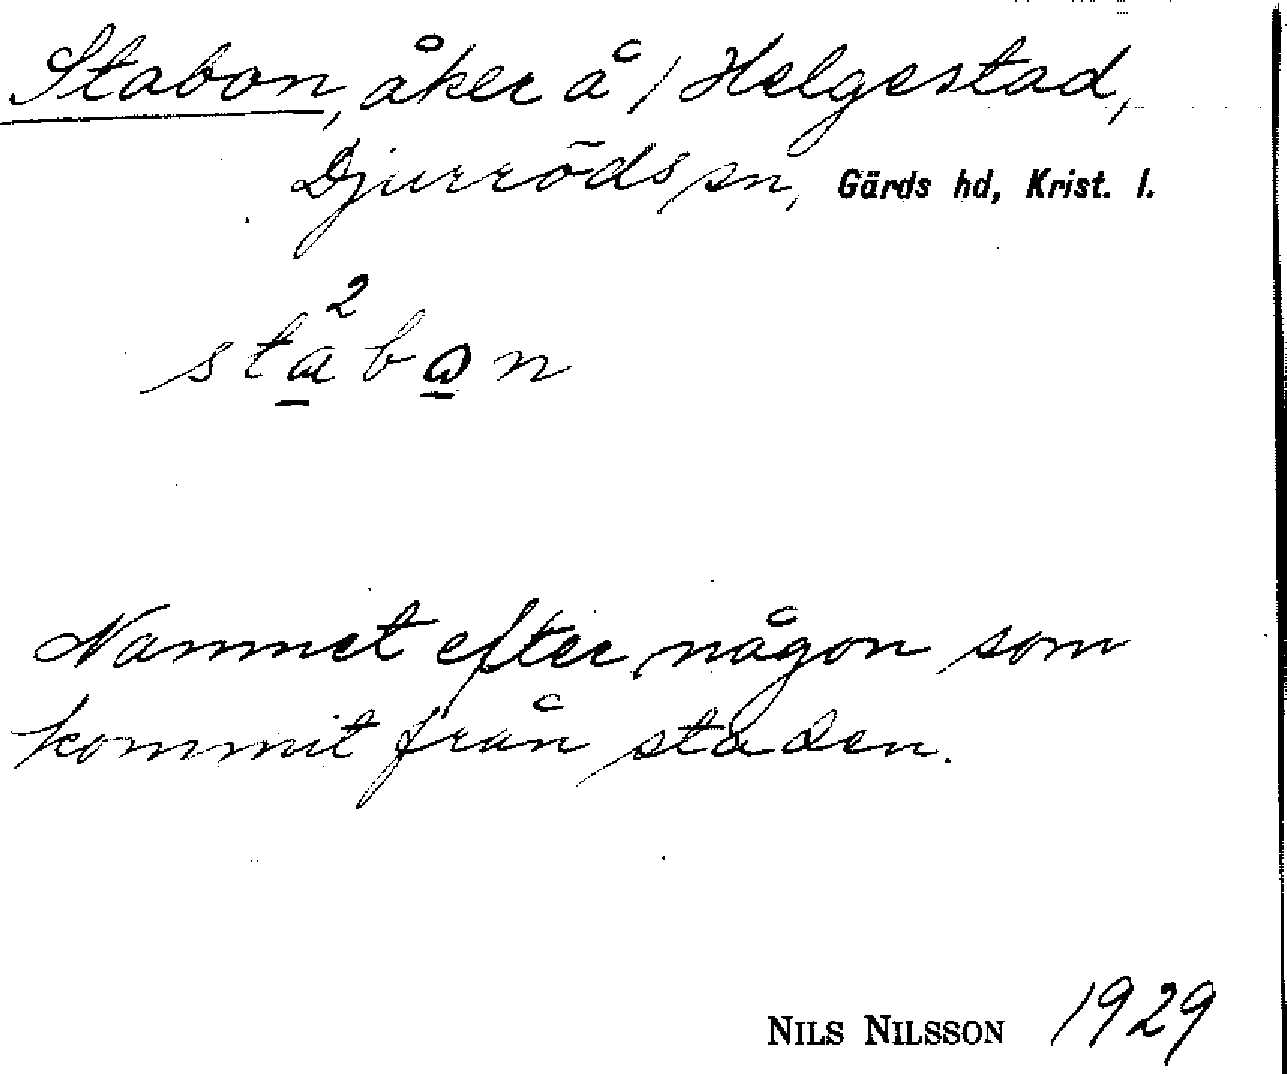 Stabon, åker å 1 Helgestad,
Djurröds sn, Gärds hd, Krist. l.
2
stabon
Namnet efter någon som
kommit från staden.
NILS NILSSON 1929